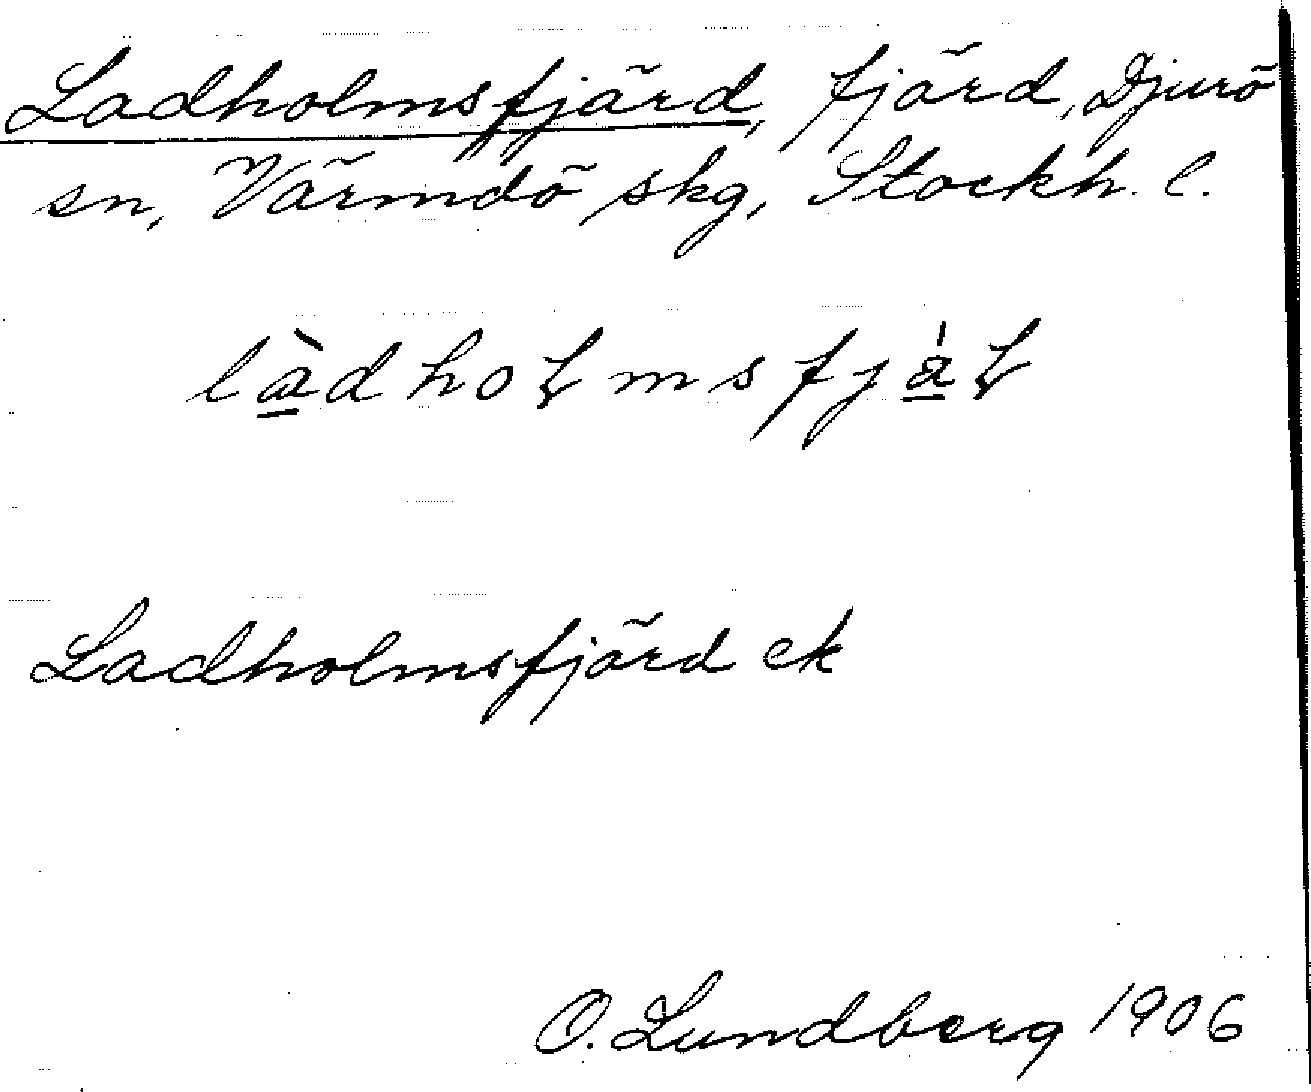 Ladholmsfjärd, fjärd, Djurö
sn, Värmdö skg, Stockh. l.
làdhoɽmsfjáɽ
Ladholmsfjärd ek
O. Lundberg 1906